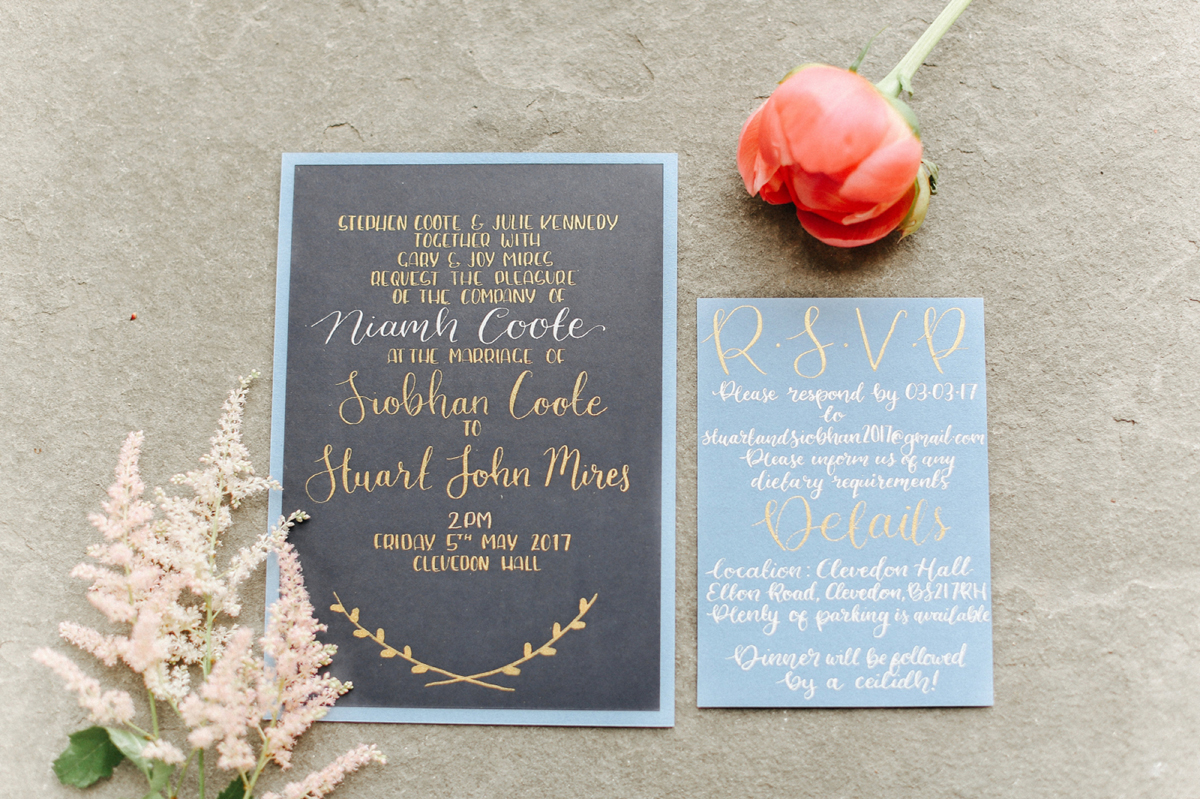 STEPHEN COOTE & JULIE KENNEDY
TOGETHER WITH
GARY & JOY MIRES
REQUEST THE PLEASURE
OF THE COMPANY OF
Niamh Coote
AT THE MARRIAGE OF
Siobhan Coote
TO
Stuart John Mires
2PM
FRIDAY 5TH MAY 2017
CLEVEDON HALL
R·S·V·P
Please respond by 03·03·17
to
stuartandsiobhan2017@gmail.com
Please inform us of any
dietary requirements
Details
Location: Clevedon Hall
Elton Road, Clevedon, BS217RH
Plenty of parking is available
Dinner will be followed
by a ceilidh!